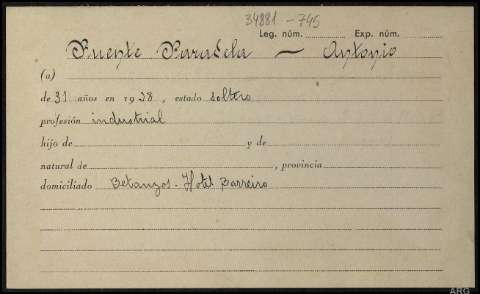 34881-745
Leg. núm. Exp. núm.
Puente Paradela — Antonio
(a)
de 31 años en 1938, estado soltero
profesión industrial
hijo de y de
natural de , provincia
domiciliado Betanzos-Hotel Barreiro
ARG